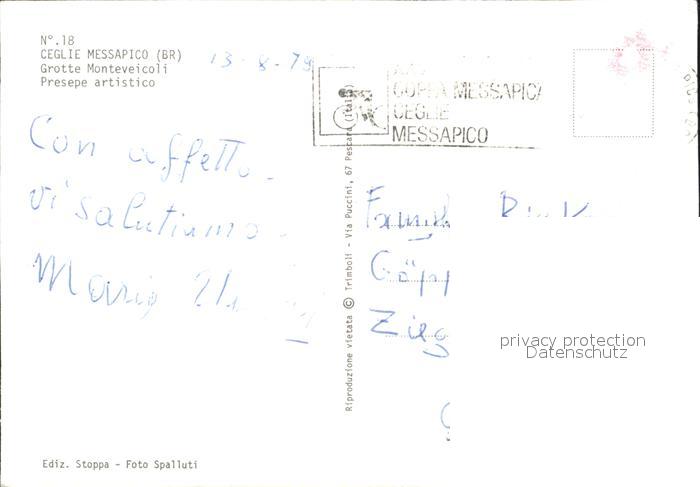 N°.18
CEGLIE MESSAPICO (BR)
Grotte Monteveicoli
Presepe artistico
13-8-79
COPPA MESSAPICA
CEGLIE
MESSAPICO
Con affetto
vi salutiamo
Mario
Riproduzione vietata © Trimboli - Via Puccini, 67 Pescara (Italia)
Göpp
Zieg
privacy protection
Datenschutz
Ediz. Stoppa - Foto Spalluti